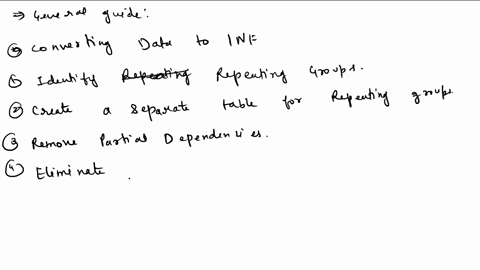 ⇒ General guide:
⓪ Converting Data to 1NF
① Identify Repeating Repeating Groups.
② Create a Separate table for Repeating groups
③ Remove Partial Dependencies.
④ Eliminate .